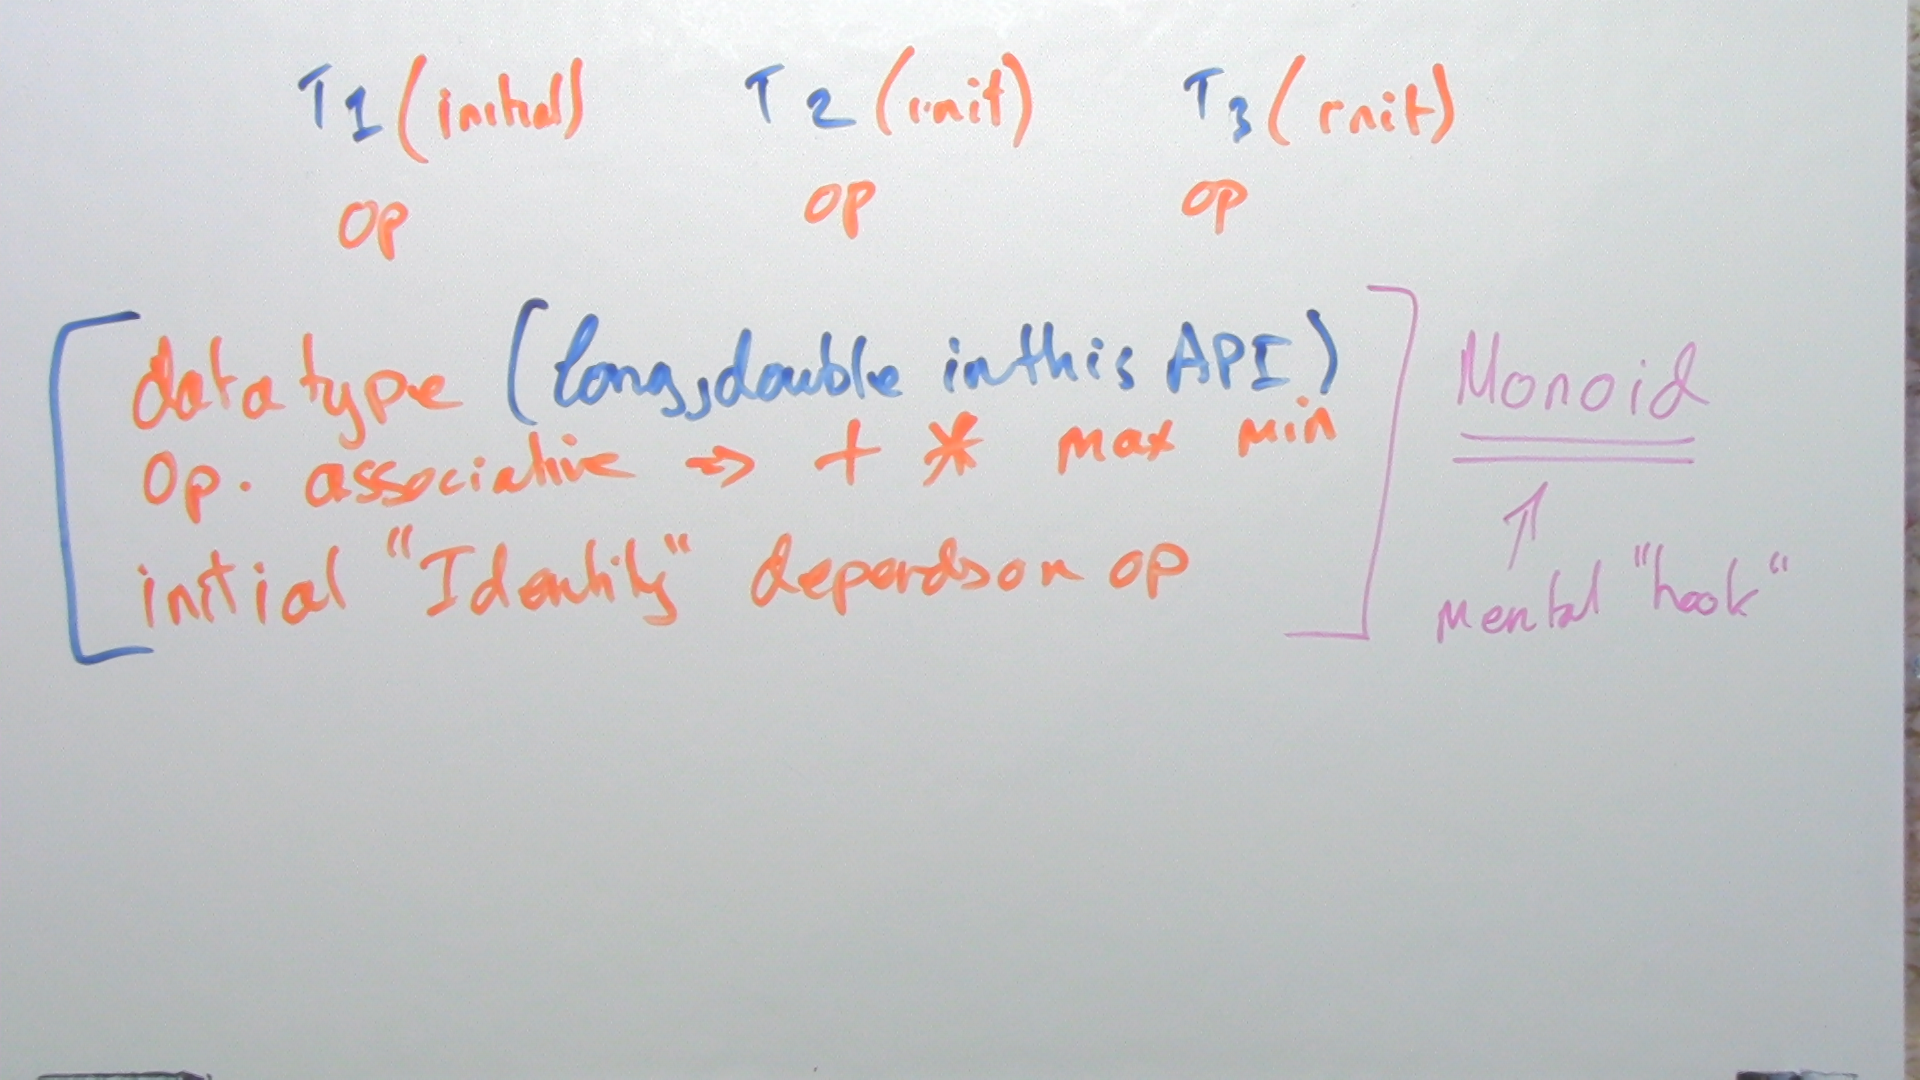 T1 (initial) T2 (init) T3 (init)
op op op
data type (long, double in this API)
Op. associative => + * max min
initial "Identity" depends on op
Monoid
mental "hook"